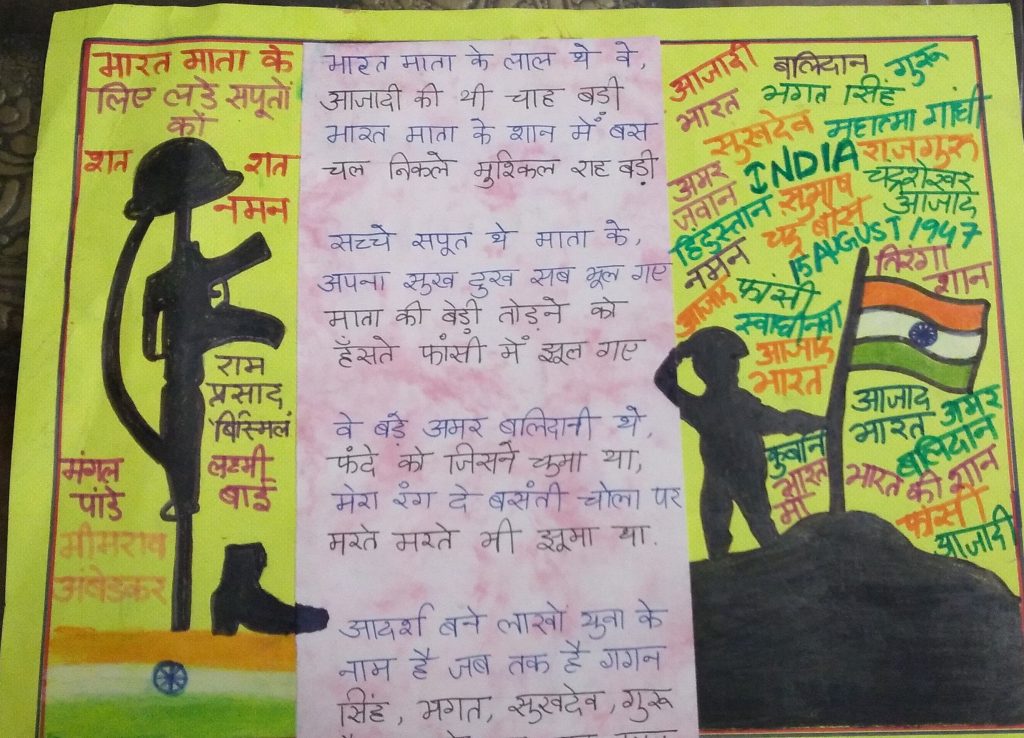 भारत माता के
लिए लड़े सपूतों
कों
शत शत
नमन
राम
प्रसाद
बिस्मिल
मंगल
पांडे
लक्ष्मी
बाई
भीमराव
अंबेडकर
भारत माता के लाल थे वे,
आजादी की थी चाह बड़ी
भारत माता के शान में बस
चल निकले मुश्किल राह बड़ी
सच्चे सपूत थे माता के,
अपना सुख दुख सब भूल गए
माता की बेड़ी तोड़ने को
हँसते फांसी में झूल गए
वे बड़े अमर बलिदानी थे,
फंदे को जिसने चुमा था,
मेरा रंग दे बसंती चोला पर
मरते मरते भी झूमा था.
आदर्श बने लाखो युवा के
नाम है जब तक है गगन
सिंह, भगत, सुखदेव, गुरू
आजादी बलिदान गुरू
भारत भगत सिंह
सुखदेव महात्मा गांधी
INDIA राजगुरू
अमर
जवान
सुभाष
चंद्र बोस
चंद्रशेखर
आजाद
हिंदुस्तान
नमन
15 AUGUST 1947
तिरंगा
शान
आजाद
फांसी
स्वाधीनता
आजाद
भारत
आजाद
भारत
अमर
बलिदान
कुर्बान
भारत
माँ
भारत की शान
फांसी
आजादी